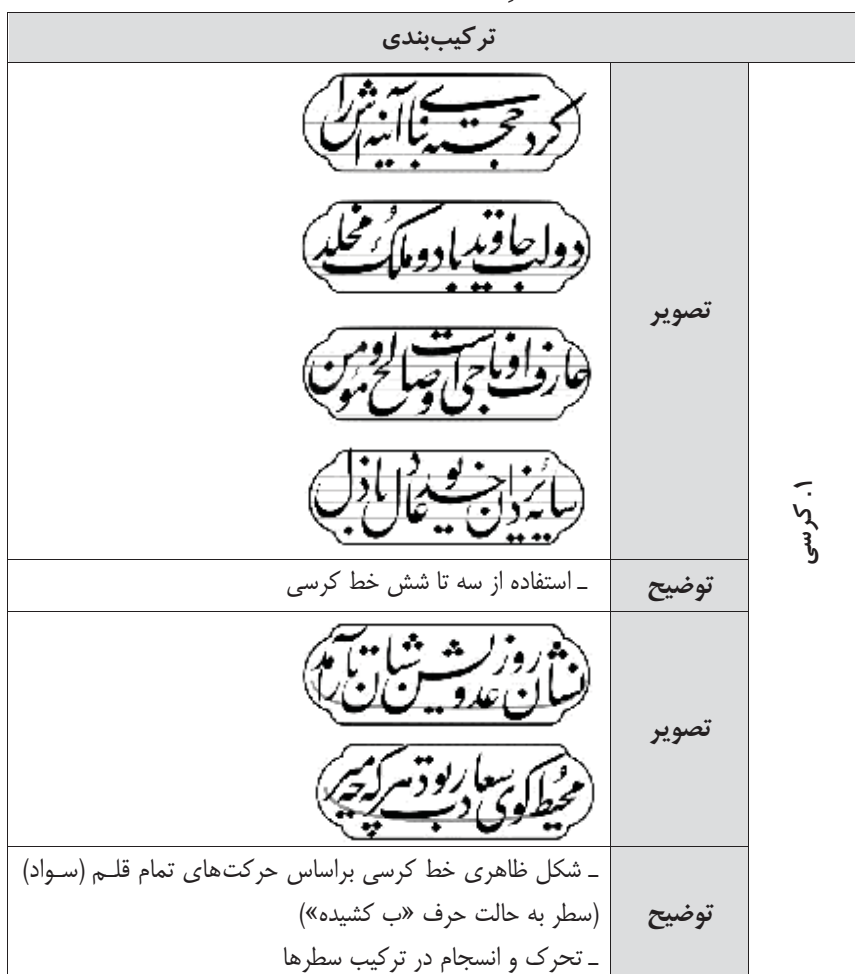 ترکیب‌بندی
۱. کرسی
تصویر
کرد
را
دولت جاوید باد و ملک مخلد
عارف او ناجی است و صالح و مؤمن
سایه یزدان خدیو عادل باذل
توضیح
ـ استفاده از سه تا شش خط کرسی
تصویر
نشان
روز
محیط کوی سعادت بود
توضیح
ـ شکل ظاهری خط کرسی براساس حرکت‌های تمام قلـم (سـواد)
(سطر به حالت حرف «ب کشیده»)
ـ تحرک و انسجام در ترکیب سطرها